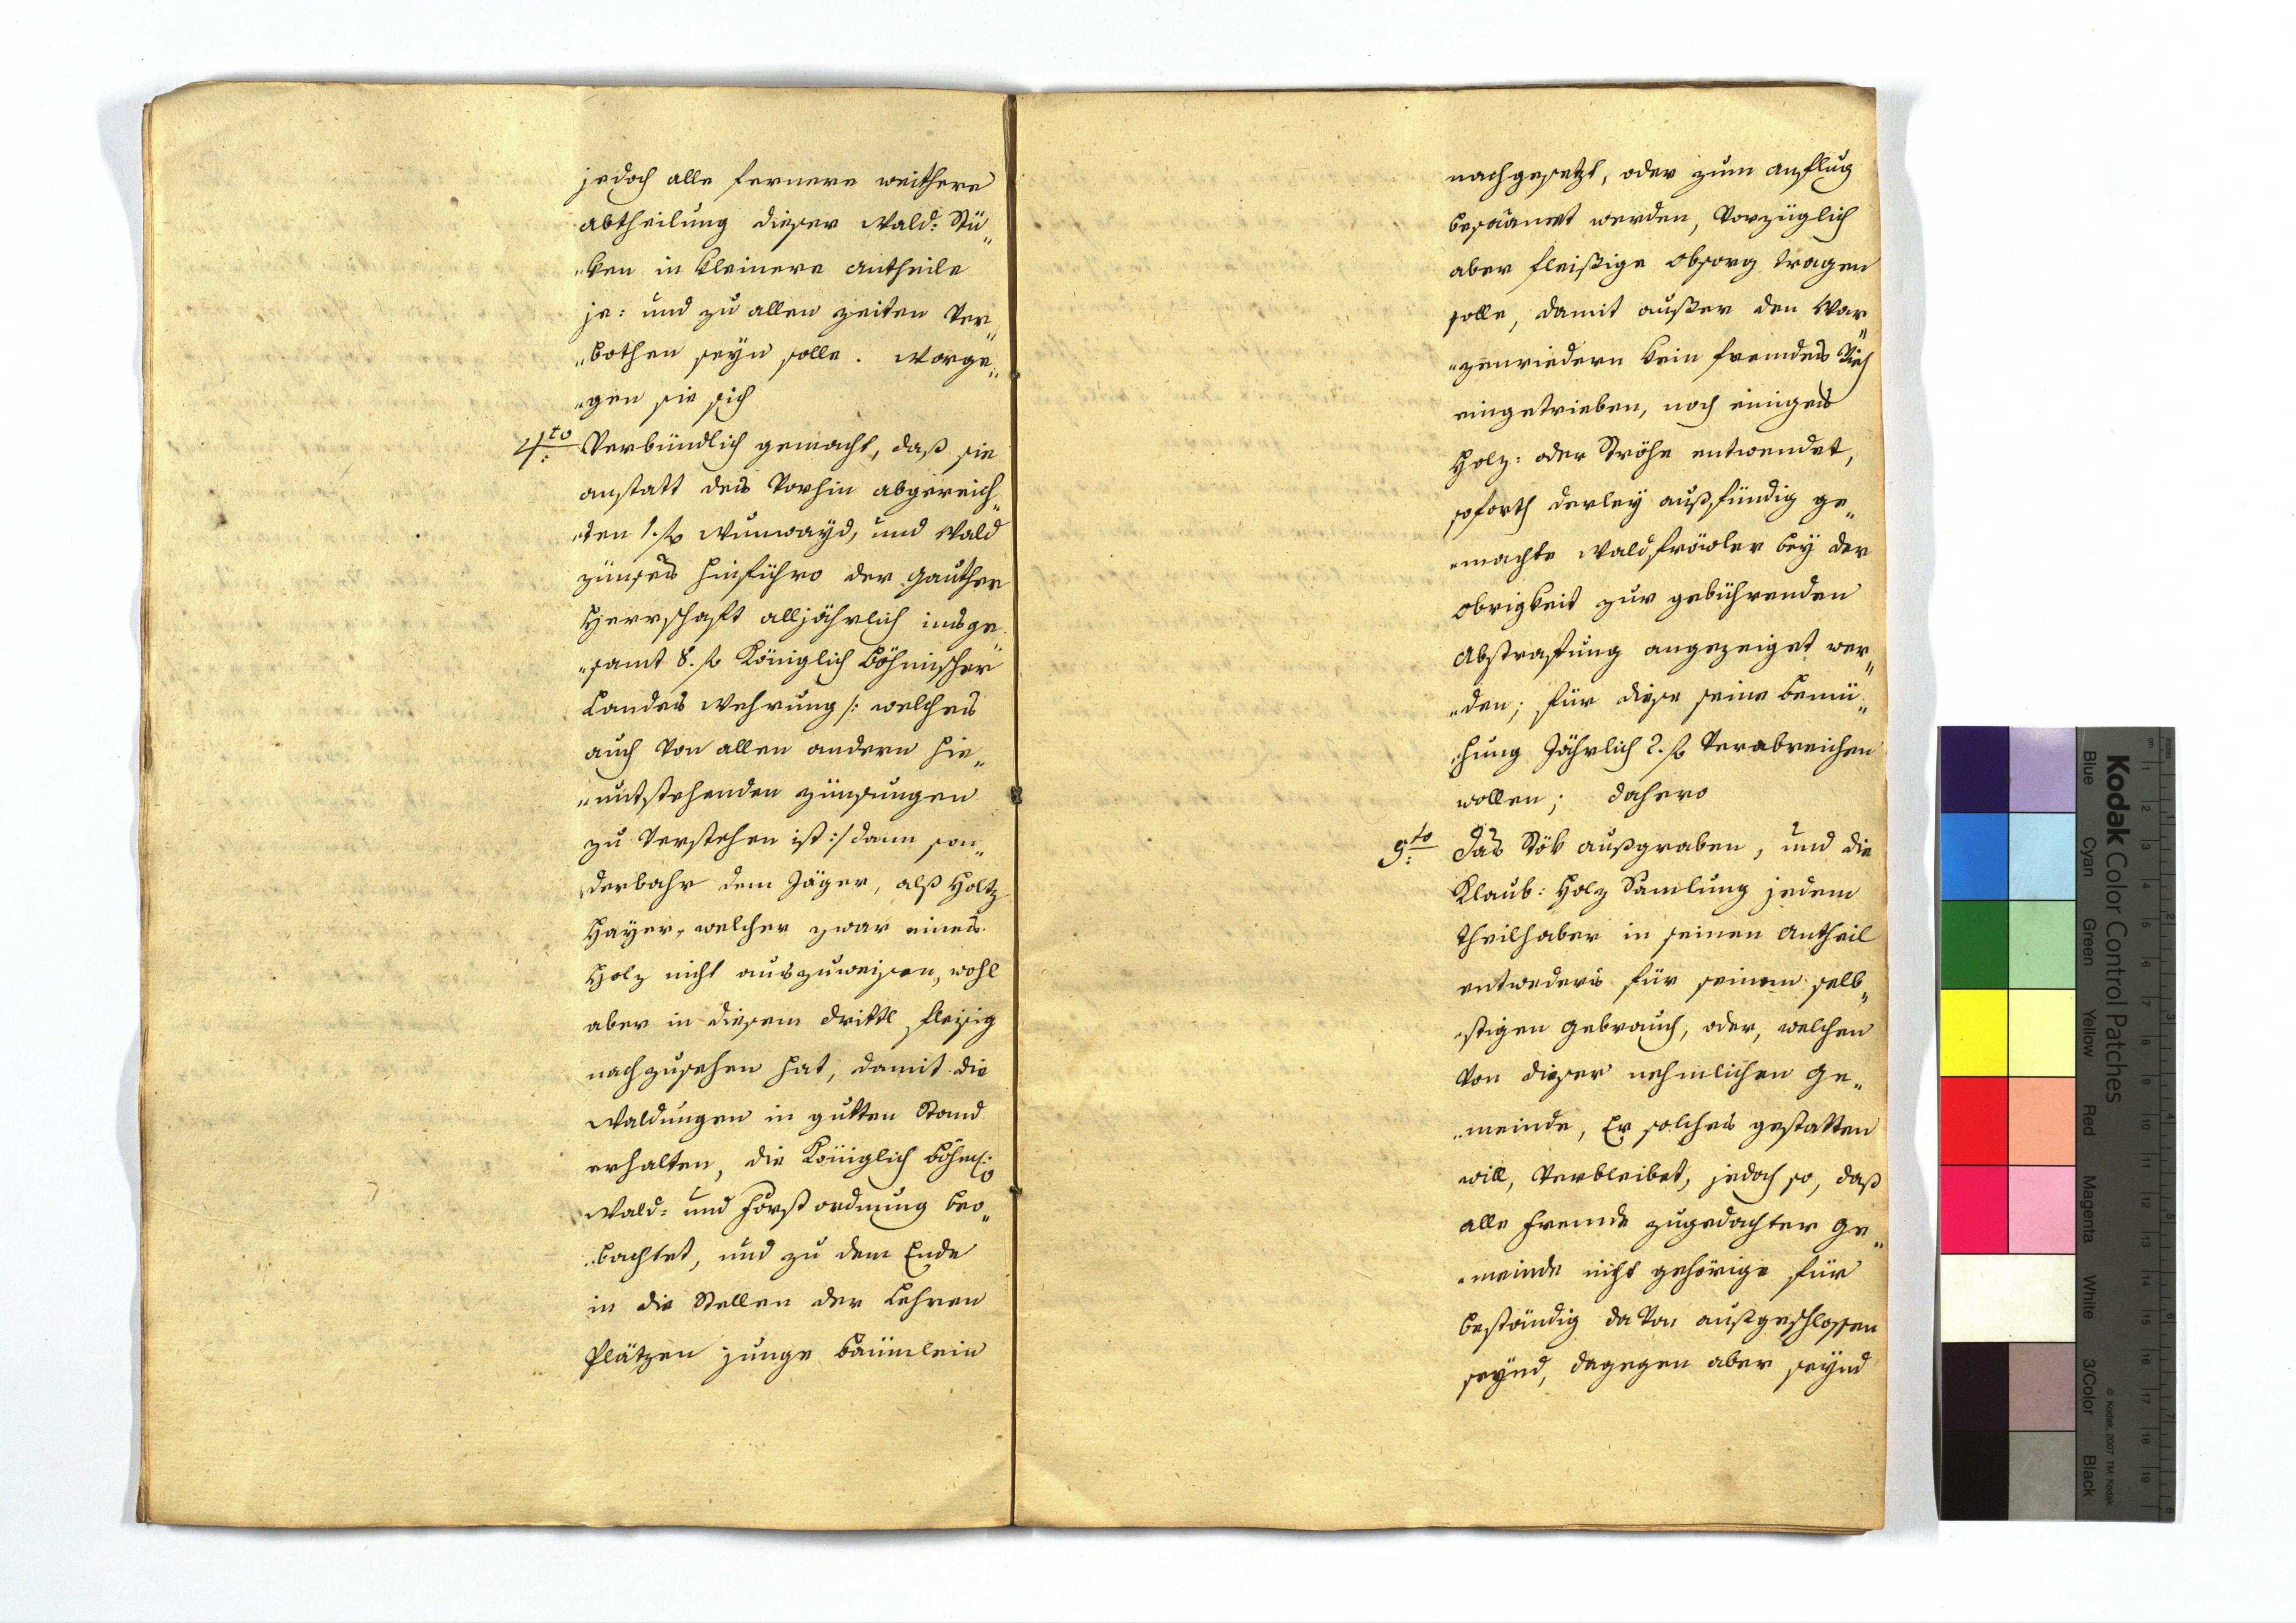 jedoch alle fernere weithere
abtheilung dieser Wald: Stü„
„ken in kleinere antheile
je: und zu allen zeiten Ver„
„bothen seyn solle. Worge„
„gen sie sich
4to: Verbündlich gemacht, daß sie
anstatt des Vorhin abgereich„
„ten 1. fl Wunwayd, und Wald
zünses hinführo der Gauther
Herrschaft alljährlich insge„
„samt 8. fl Königlich Böhmischer
Landes Wehrung /: welches
auch Von allen andern hie„
„entstehenden zünsungen
zu Verstehen ist :/ dann son„
„derbahr dem Jäger, alß Holtz
Hayer, welcher zwar eines
Holz nicht auszuweisen, wohl
aber in diesem drittl fleisig
nachzusehen hat, damit die
Waldungen in gutten Stand
erhalten, die Königlich böhm:
Wald: und Forst ordnung beo„
„bachtet, und zu dem Ende
in die Stellen der Lehren
Plätzen junge bäumlein
nachgesetzt, oder zum anflug
besäamt werden, Vorzüglich
aber fleißige Obsorg tragen
solle, damit außer den War„
„zenriedern kein fremdes Vieh
eingetrieben, noch einiges
Holz: oder Ströhe entwendet,
soforth derley außfündig ge„
„machte Waldfräwler bey der
Obrigkeit zur gebührenden
Abstrafung angezeiget wer„
„den; für diese seine bemü„
„hung Jährlich 2. fl Verabreichen
wollen; dahero
5to: Das Stök außgraben, und die
Klaub: Holz Samlung jedem
theilhaber in seinen Antheil
entweders für seinem selb„
„stigen gebrauch, oder, welchen
Von dieser nehmlichen Ge„
„meinde, Er solches gestatten
will, Verbleibet, jedoch so, daß
alle fremde zugedachter Ge„
„meinde nicht gehörige für
beständig da Von außgeschlossen
seynd, dagegen aber seynd
Kodak Color Control Patches
Blue Cyan Green Yellow Red Magenta White 3/Color Black
© Kodak, 2007 TM: Kodak